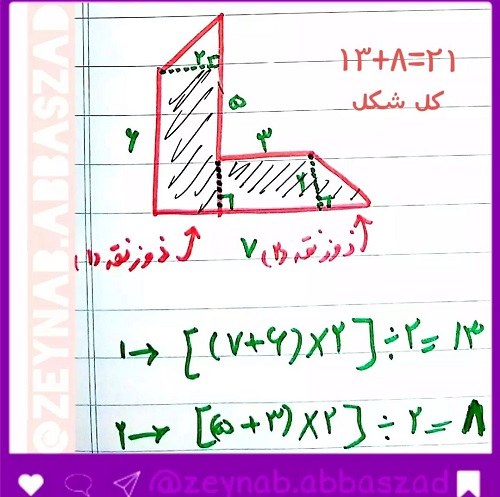 @ZEYNAB.ABBASZAD
۱۳+۸=۲۱
کل شکل
۲
۵
۶
۳
۲
۷
ذوزنقه (۱)
ذوزنقه (۲)
۱→ [(۷+۶)×۲]÷۲=۱۳
۲→ [(۵+۳)×۲]÷۲=۸
@zeynab.abbaszad